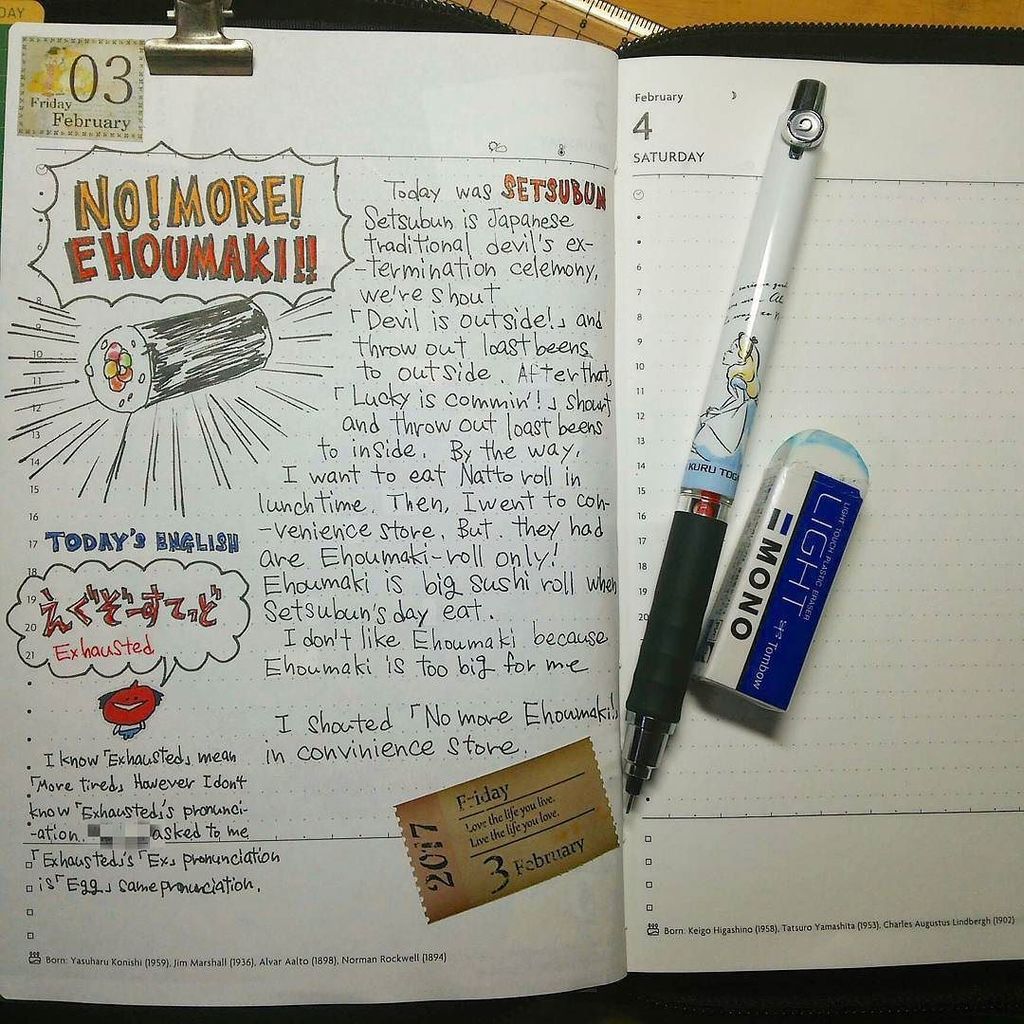 DAY
03
Friday
February
NO! MORE!
EHOUMAKI!!
Today was SETSUBUN
Setsubun is Japanese
traditional devil's ex-
-termination celemony,
we're shout
「Devil is outside!」 and
throw out loast beens
to outside. After that,
「Lucky is commin'!」 shout
and throw out loast beens
to inside. By the way,
I want to eat Natto roll in
lunchtime. Then, I went to con-
-venience store. But. they had
are Ehoumaki-roll only!
Ehoumaki is big sushi roll when
Setsubun's day eat.
I don't like Ehoumaki because
Ehoumaki is too big for me
I shouted 「No more Ehoumaki!」
in convinience store.
8
9
10
11
12
13
14
15
16
17
18
19
20
21
TODAY'S ENGLISH
えぐぞーすてっど
Exhausted
I know 「Exhausted」 mean
「More tired」 However I don't
know 「Exhausted」's pronunci-
-ation. asked to me
「Exhausted」's 「Ex」 pronunciation
is 「Egg」 same pronunciation.
2017
Friday
Love the life you live.
Live the life you love.
3 February
Born: Yasuharu Konishi (1959), Jim Marshall (1936), Alvar Aalto (1898), Norman Rockwell (1894)
February
4
SATURDAY
5
6
7
8
9
10
11
12
13
14
15
16
17
18
19
20
KURU TOGA
LIGHT TOUCH PLASTIC ERASER
LIGHT
MONO
Tombow
Born: Keigo Higashino (1958), Tatsuro Yamashita (1953), Charles Augustus Lindbergh (1902)